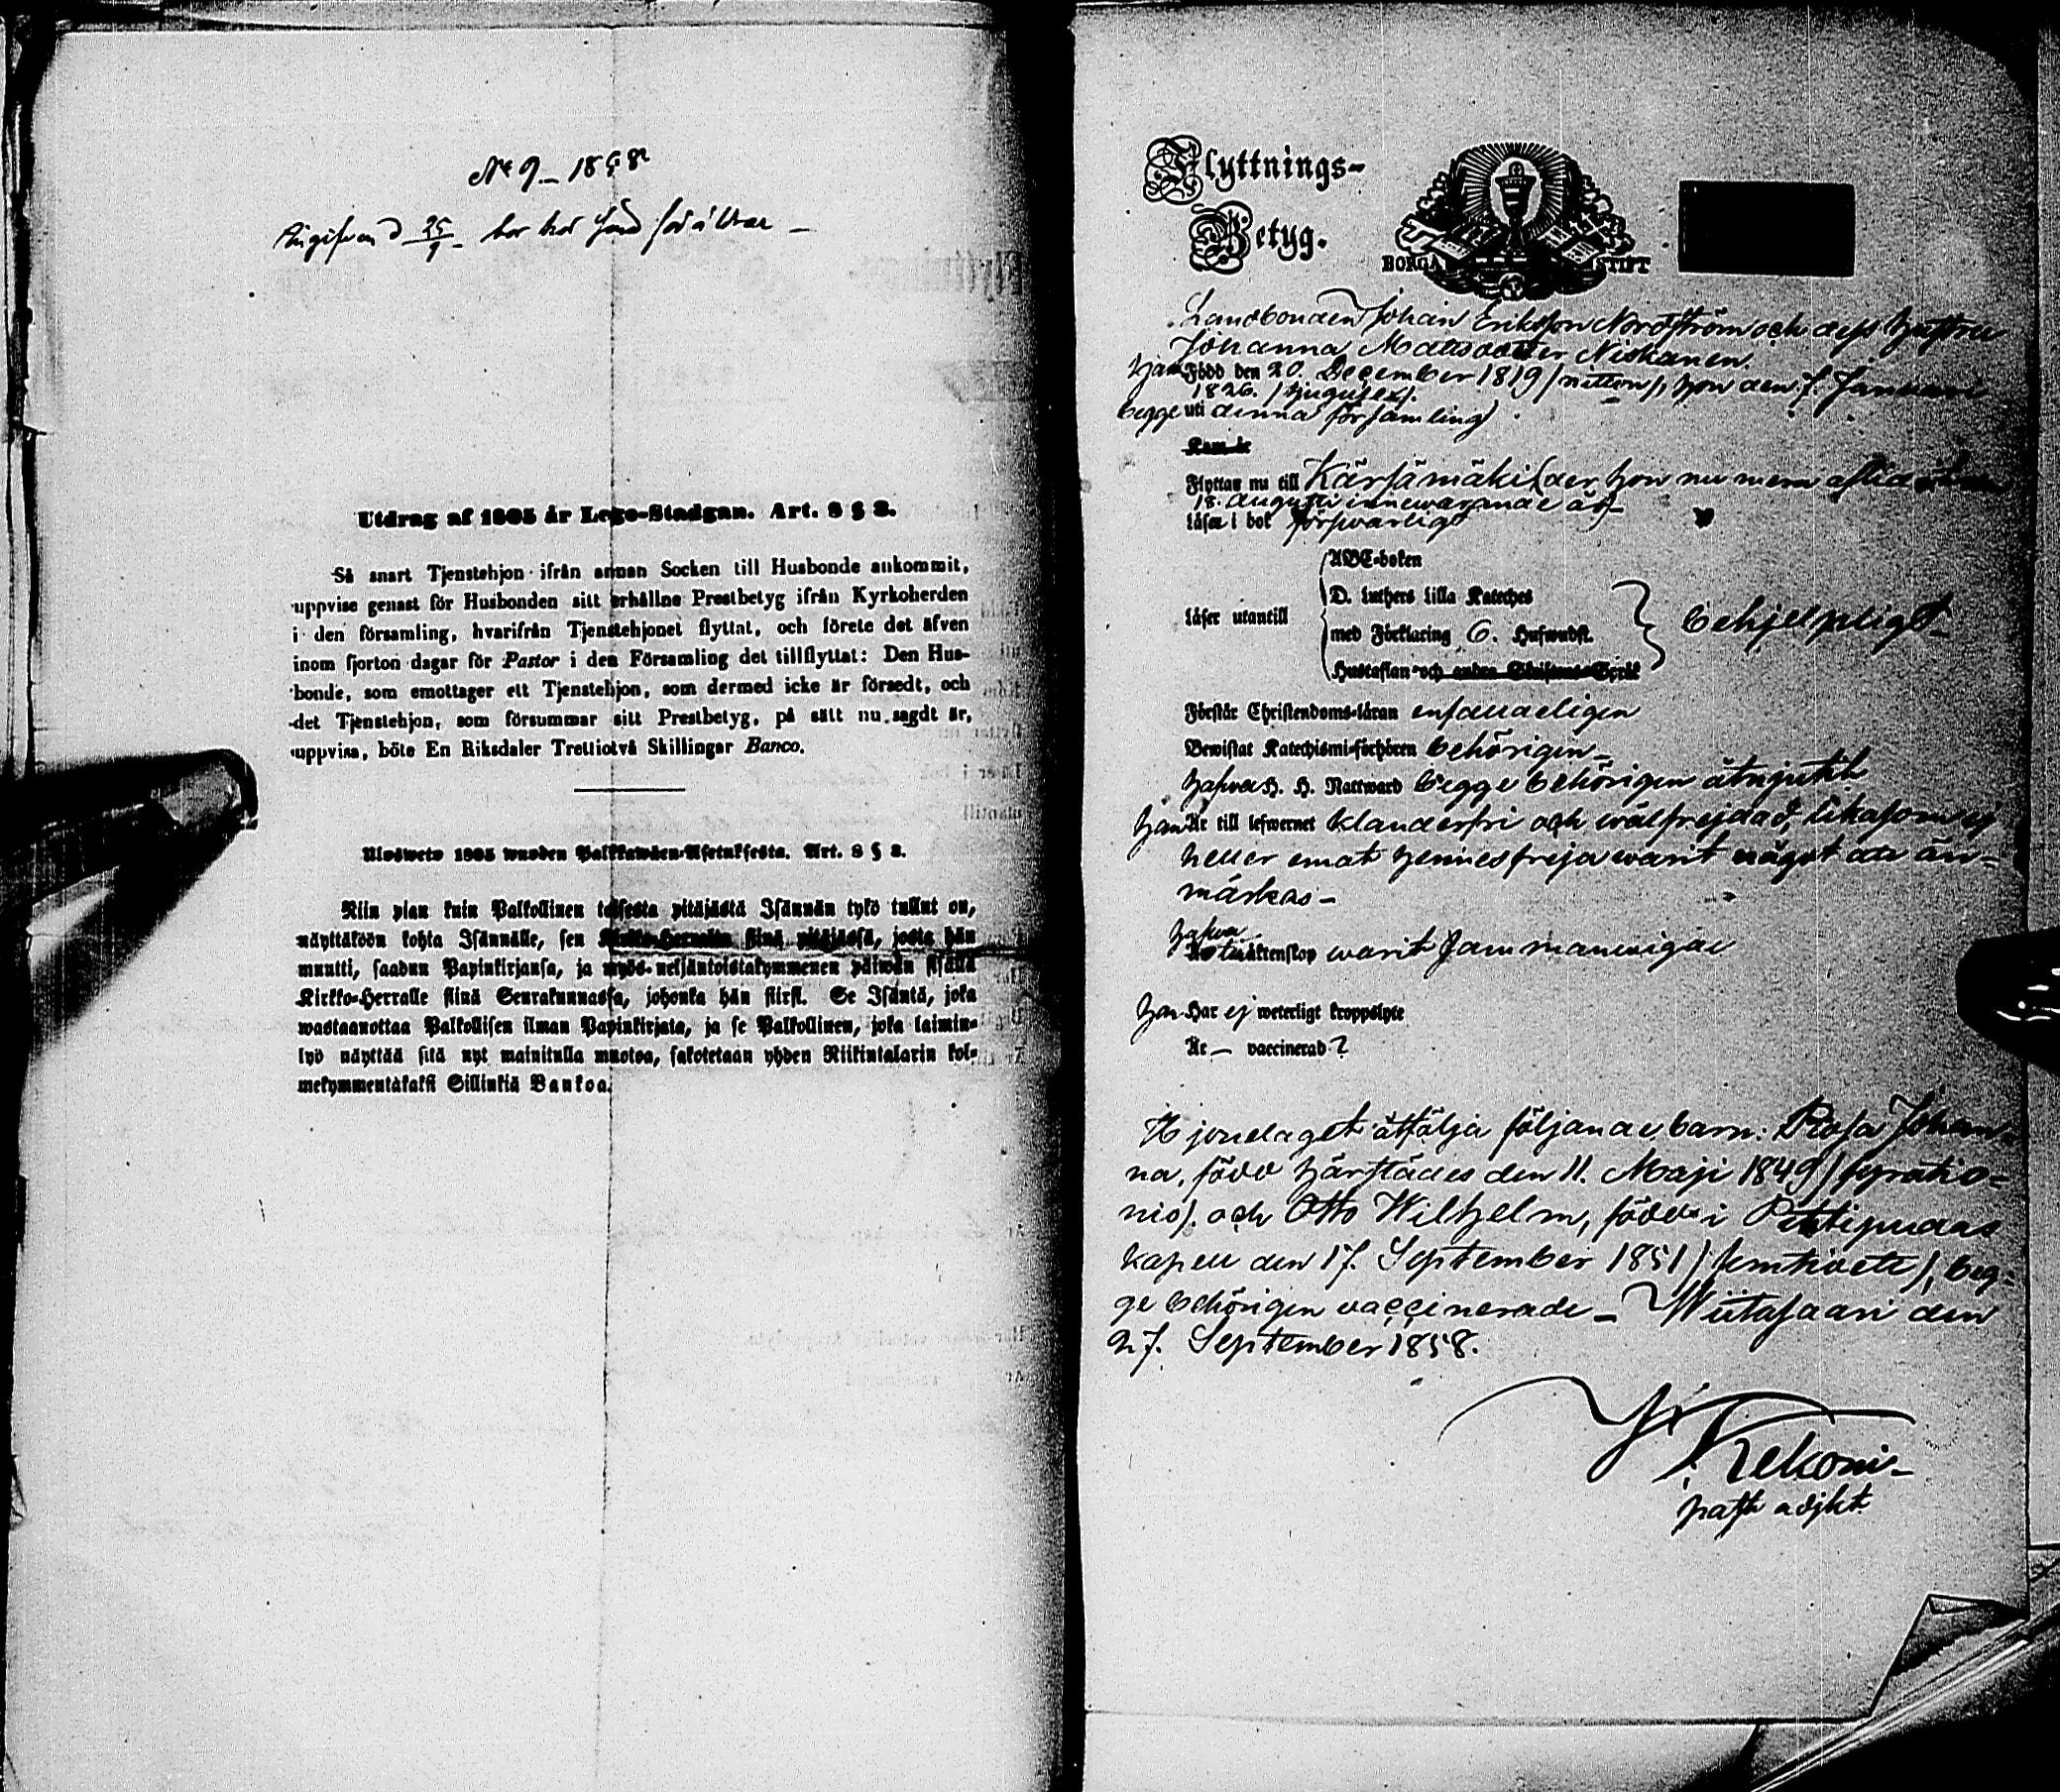 No 9 - 1858
Utdrag af 1805 år Lego-Stadgan. Art. 8 § 8.
Så snart Tjenstehjon ifrån annan Socken till Husbonde ankommit,
uppvise genast för Husbonden sitt erhållne Prestbetyg ifrån Kyrkoherden
i den församling, hvarifrån Tjenstehjonet flyttat, och förete det äfven
inom fjorton dagar för Pastor i den Församling det tillflyttat: Den Hus-
bonde, som emottager ett Tjenstehjon, som dermed icke är försedt, och
det Tjenstehjon, som försummar sitt Prestbetyg, på sätt nu sagdt är,
uppvisa, böte En Riksdaler Trettiotvå Skillingar Banco.
Ulosweto 1805 wuoden Palkkawäen-Asetuksesta. Art. 8 § 8.
Niin pian kuin Palkollinen toisesta pitäjästä Isännän tykö tullut on,
näyttäköön kohta Isännälle, sen Kirkko-Herralta siinä pitäjässä, josta hän
muutti, saadun Papinkirjansa, ja myös neljäntoistakymmenen päiwän sisällä
Kirkko-Herralle siinä Seurakunnassa, johonka hän siirsi. Se Isäntä, joka
wastaanottaa Palkollisen ilman Papinkirjata, ja se Palkollinen, joka laimin-
lyö näyttää sitä nyt mainitulla muotoa, sakotetaan yhden Riikintalarin kol-
mekymmentäkaksi Sillinkiä Bankoa.
Flyttnings-
Betyg.
BORGÅ STIFT
Landbonden Johan Eriksson Nordström och dess hustru
Johanna Matsdotter Niskanen.
han Född den 20. December 1819 /nitton/, hon den 7. Januari
1826. /tjugusex/.
begge uti denna församling
Flyttar nu till Kärsämäki (der hon nu mera aflidit den
18. Augusti innewarande år
läser i bok försvarligt
läser utantill
ABC-boken
D. Luthers lilla Kateches
med Förklaring 6. Hufwudst.
Hustaflan och andra Skriftens Språk
behjelpligt
Förstår Christendoms-läran enfaldeligen
Bewistat Katechismi-förhören behörigen
hafva H. H. Nattward begge behörigen åtnjutit
han Är till lefwernet klanderfri och wälfrejdad, likasom ej
heller emot hennes frejd warit något att an-
märkas -
hafva
äktenskap warit sammanvigde
han Har ej weterligt kroppslyte
Är - vaccinerad?
Hjonelaget åtfölja följande barn: Rosa Johan-
na, född härstädes den 11. Maji 1849
och Otto Wilhelm, född i Pihtipudas
kapell den 17. September 1851 /femtioett/, beg-
ge behörigen vaccinerade - Wiitasaari den
27. September 1858.